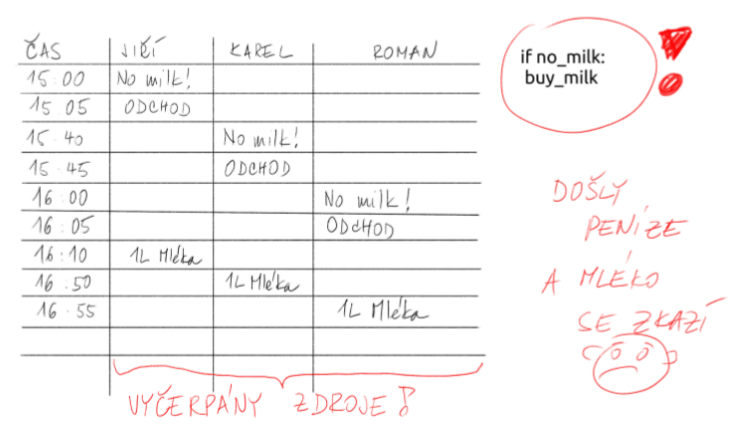 ČAS JIŘÍ KAREL ROMAN
15:00 No milk!
15 05 ODCHOD
15:40 No milk!
15.45 ODCHOD
16:00 No milk!
16:05 ODCHOD
16:10 1L Mléka
16:50 1L Mléka
16.55 1L Mléka
VYČERPÁNY ZDROJE!
if no_milk:
buy_milk
!
DOŠLY
PENÍZE
A MLÉKO
SE ZKAZÍ